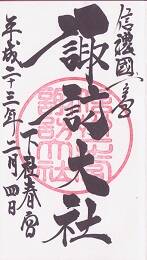 信濃國一之宮
諏訪大社
下社春宮
平成二十三年二月四日